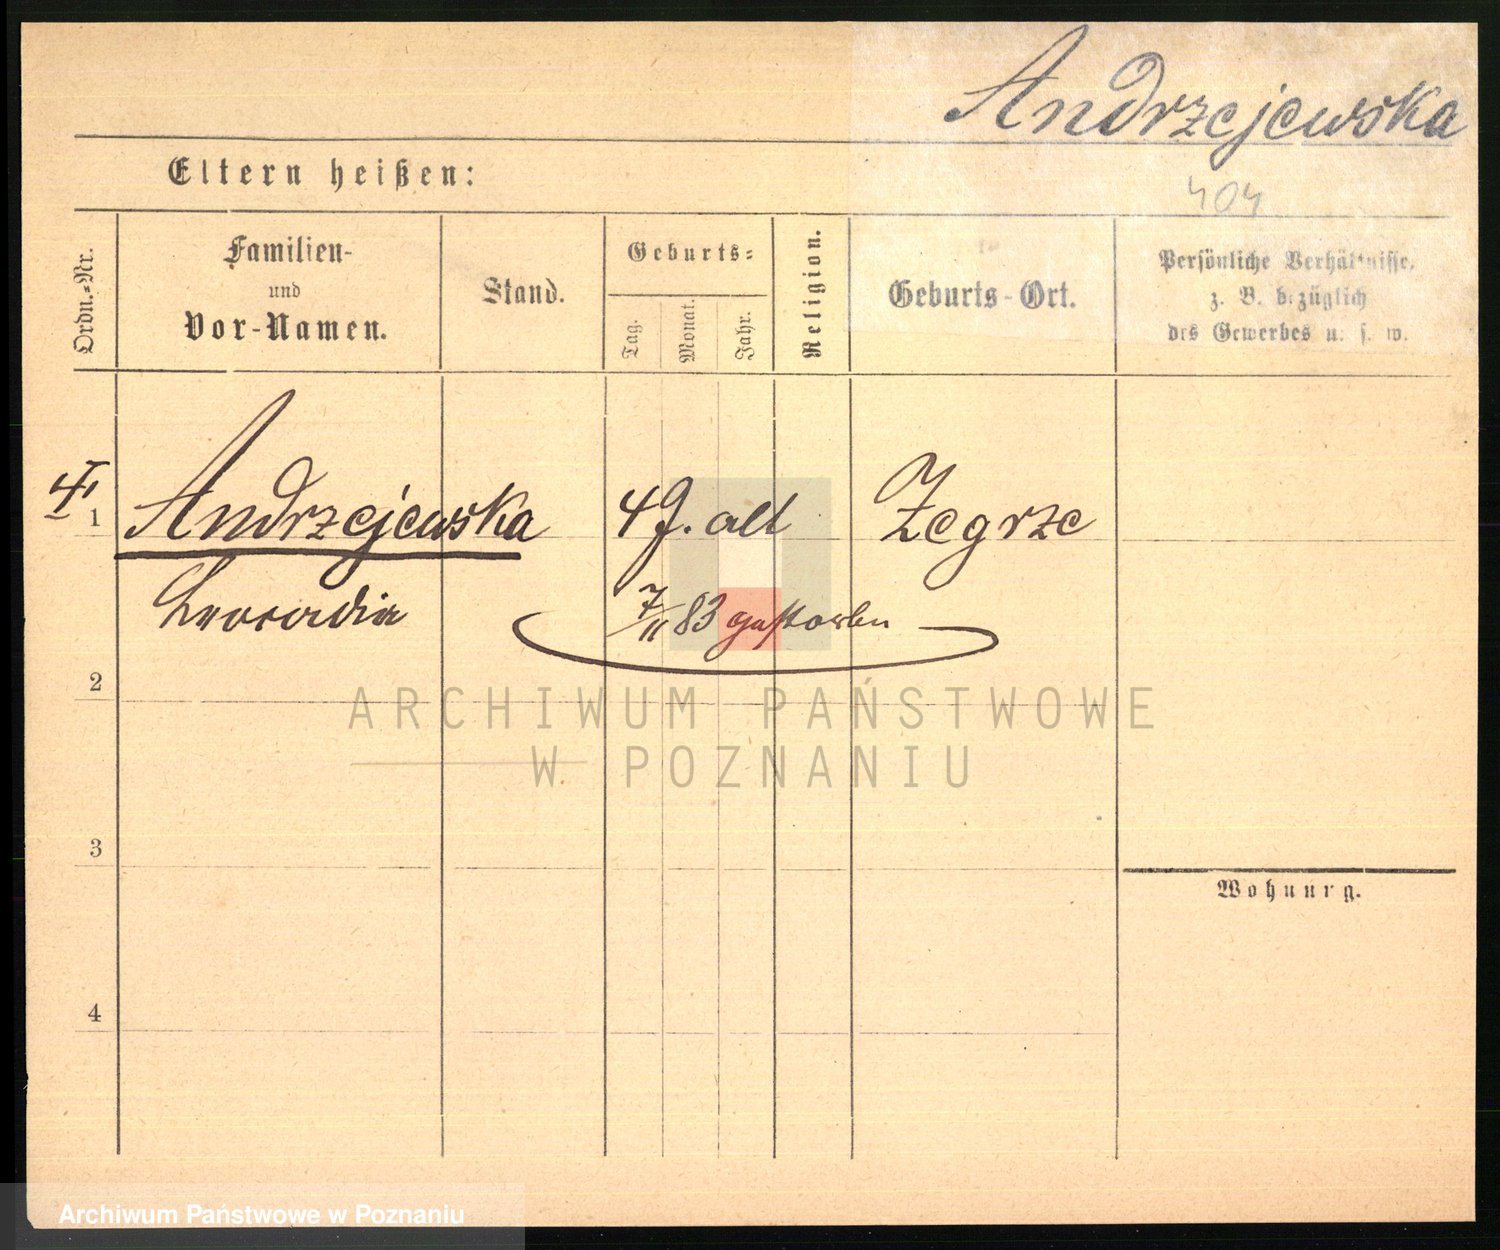 Andrzejewska
404
Eltern heißen:
Ordn.-Nr.
Familien-
und
Vor-Namen.
Stand.
Geburts-
Tag.
Monat.
Jahr.
Religion.
Geburts-Ort.
Persönliche Verhältnisse,
z. B. bezüglich
des Gewerbes u. s. w.
1 Andrzejewska 4 J. alt Zegrze
Leocadia 7/11 83 gestorben
2
ARCHIWUM PAŃSTWOWE
W POZNANIU
3
Wohnung.
4
Archiwum Państwowe w Poznaniu